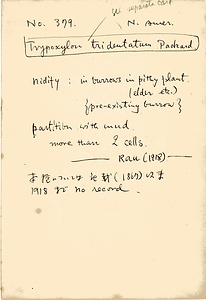 see separate card
No. 379. N. Amer.
Trypoxylon tridentatum Packard
nidify : in burrows in pithy plant
(elder etc.)
{pre-existing burrow}
partition with mud.
more than 2 cells.
Rau (1918)
(1867)
1918 no record.